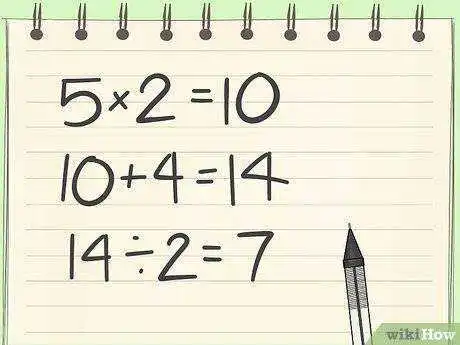 5×2=10
10+4=14
14÷2=7
wikiHow